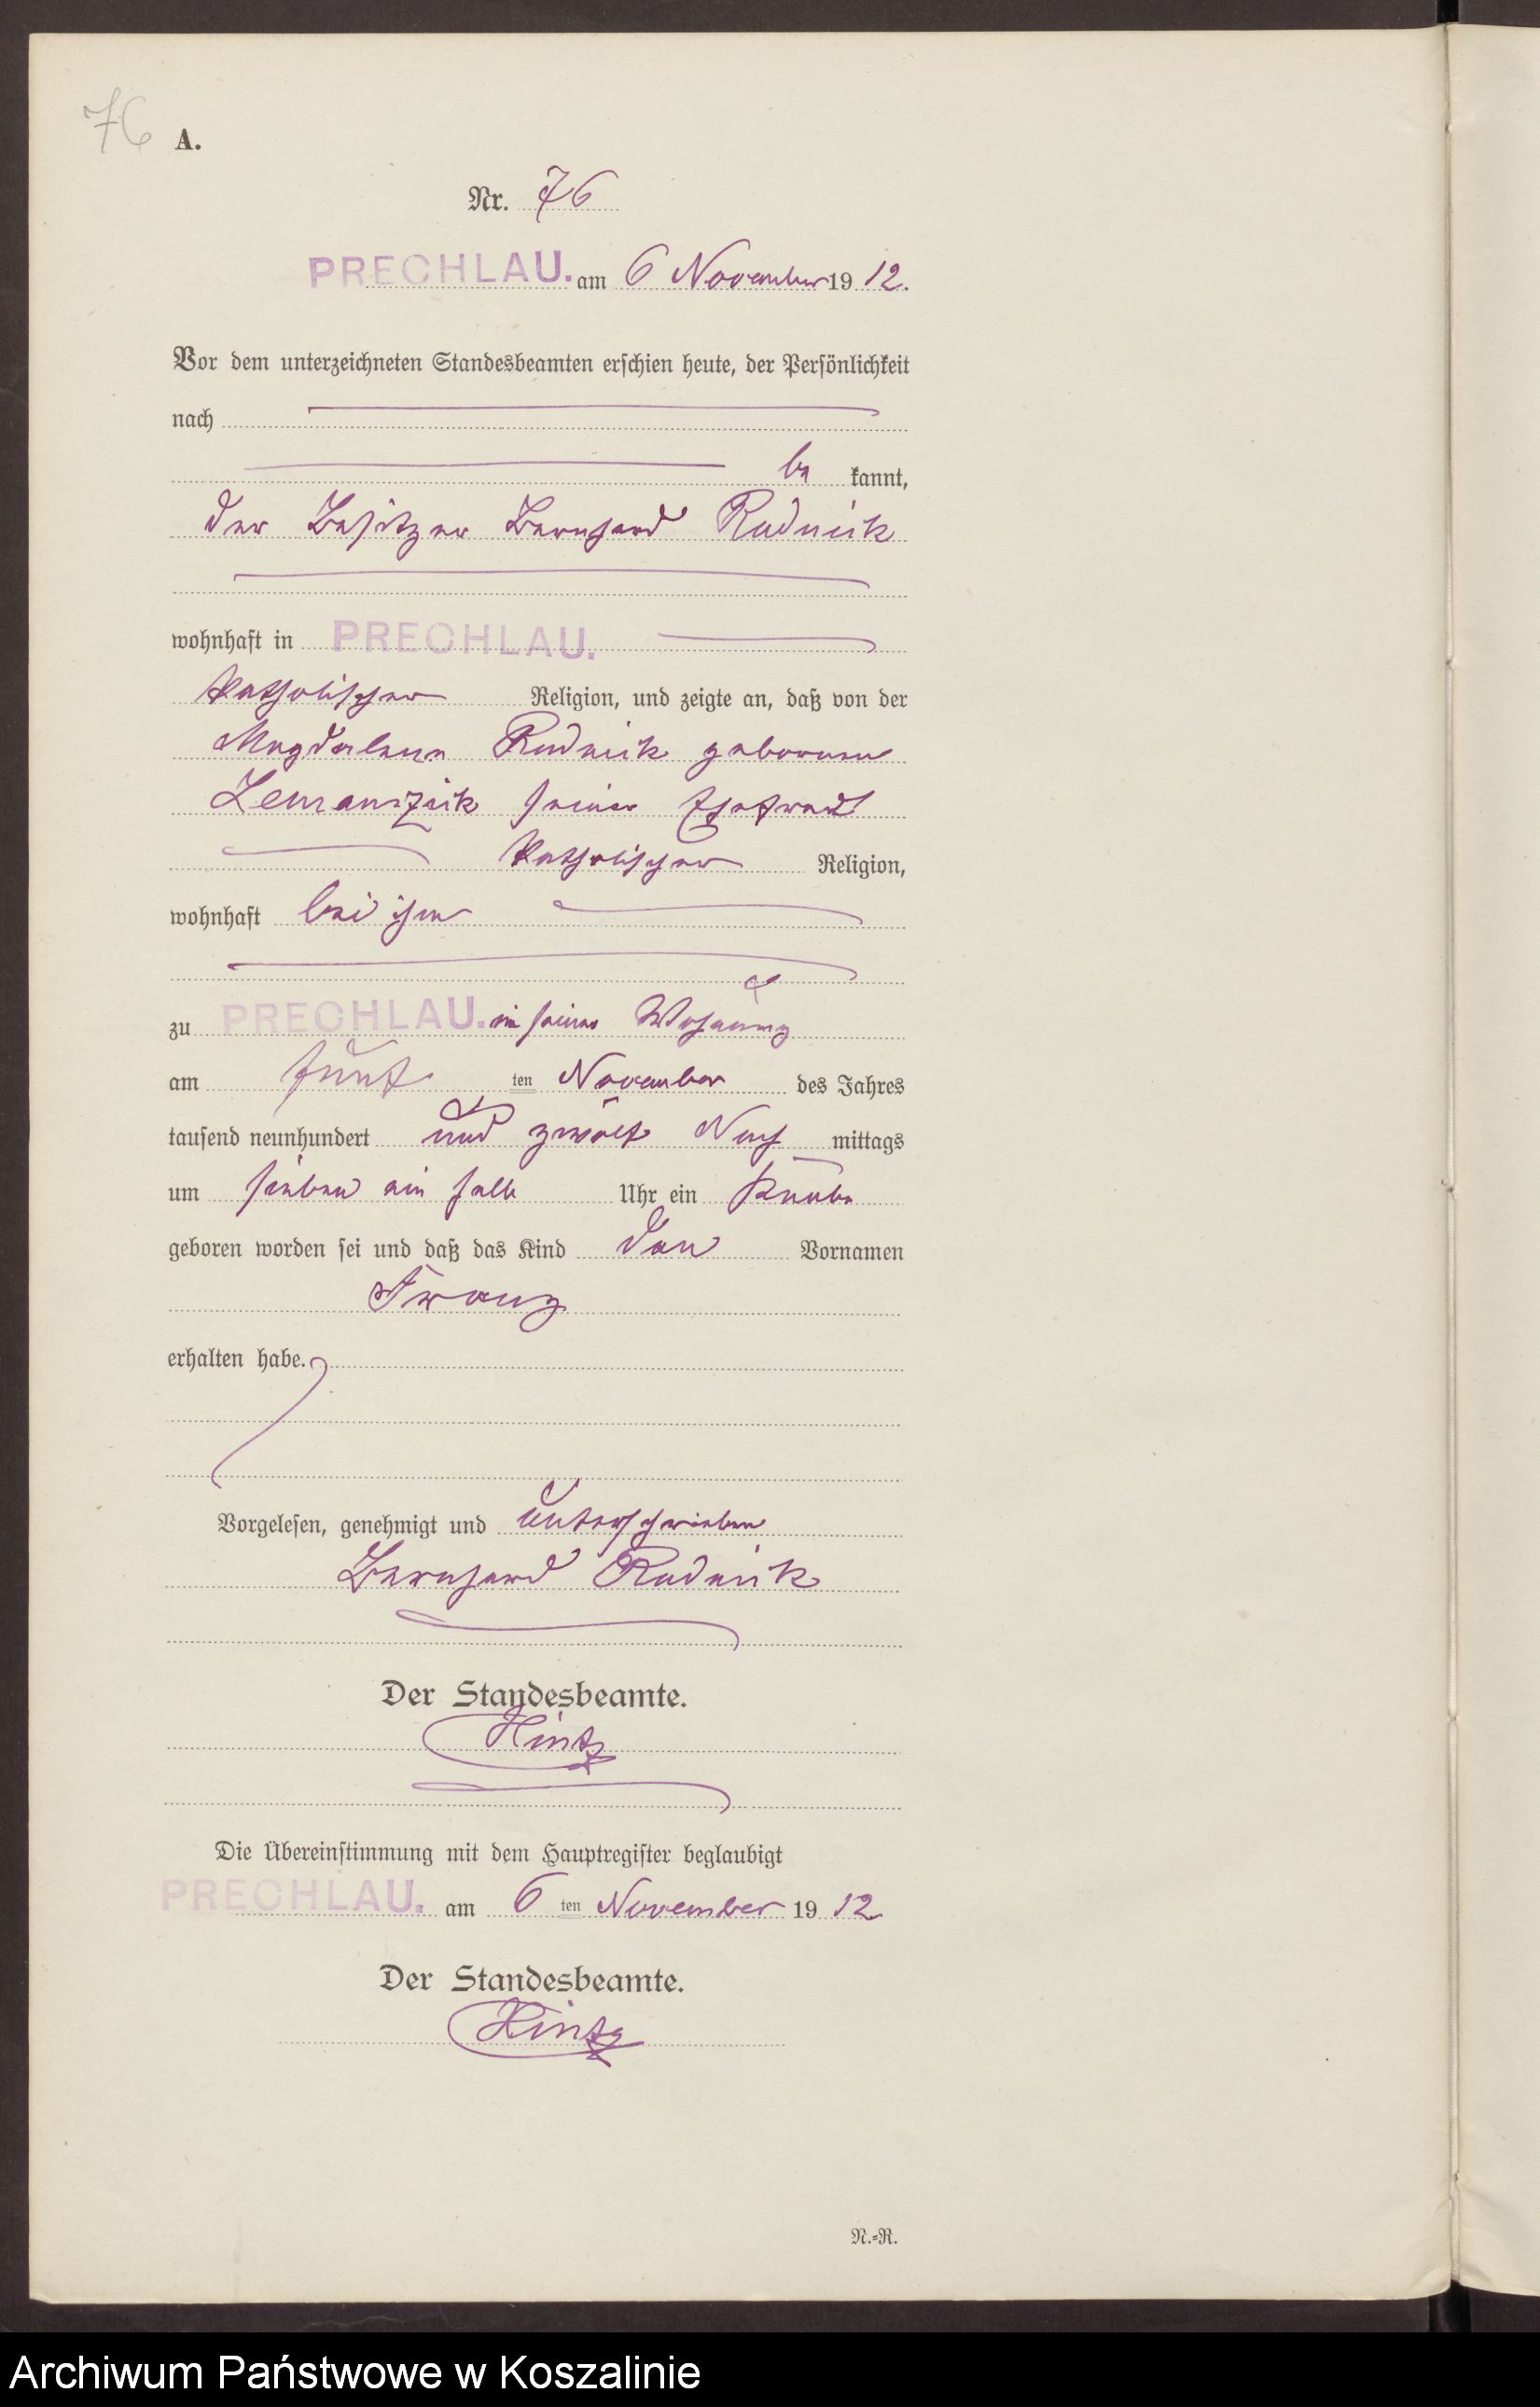 76
A.
Nr. 76
PRECHLAU. am 6 November 1912.
Vor dem unterzeichneten Standesbeamten erschien heute, der Persönlichkeit
nach
be kannt,
der Besitzer Bernhard Rudnik
wohnhaft in PRECHLAU.
katholischer Religion, und zeigte an, daß von der
Magdalena Rudnik geborenen
seiner Ehefrau
katholischer Religion,
wohnhaft bei ihm
zu PRECHLAU. in seiner Wohnung
am fünf ten November des Jahres
tausend neunhundert und zwölf Nach mittags
um sieben ein halb Uhr ein Knabe
geboren worden sei und daß das Kind den Vornamen
Franz
erhalten habe.
Vorgelesen, genehmigt und unterschrieben
Bernhard Rudnik
Der Standesbeamte.
Hintz
Die Übereinstimmung mit dem Hauptregister beglaubigt
PRECHLAU. am 6 ten November 1912
Der Standesbeamte.
Hintz
N.=R.
Archiwum Państwowe w Koszalinie